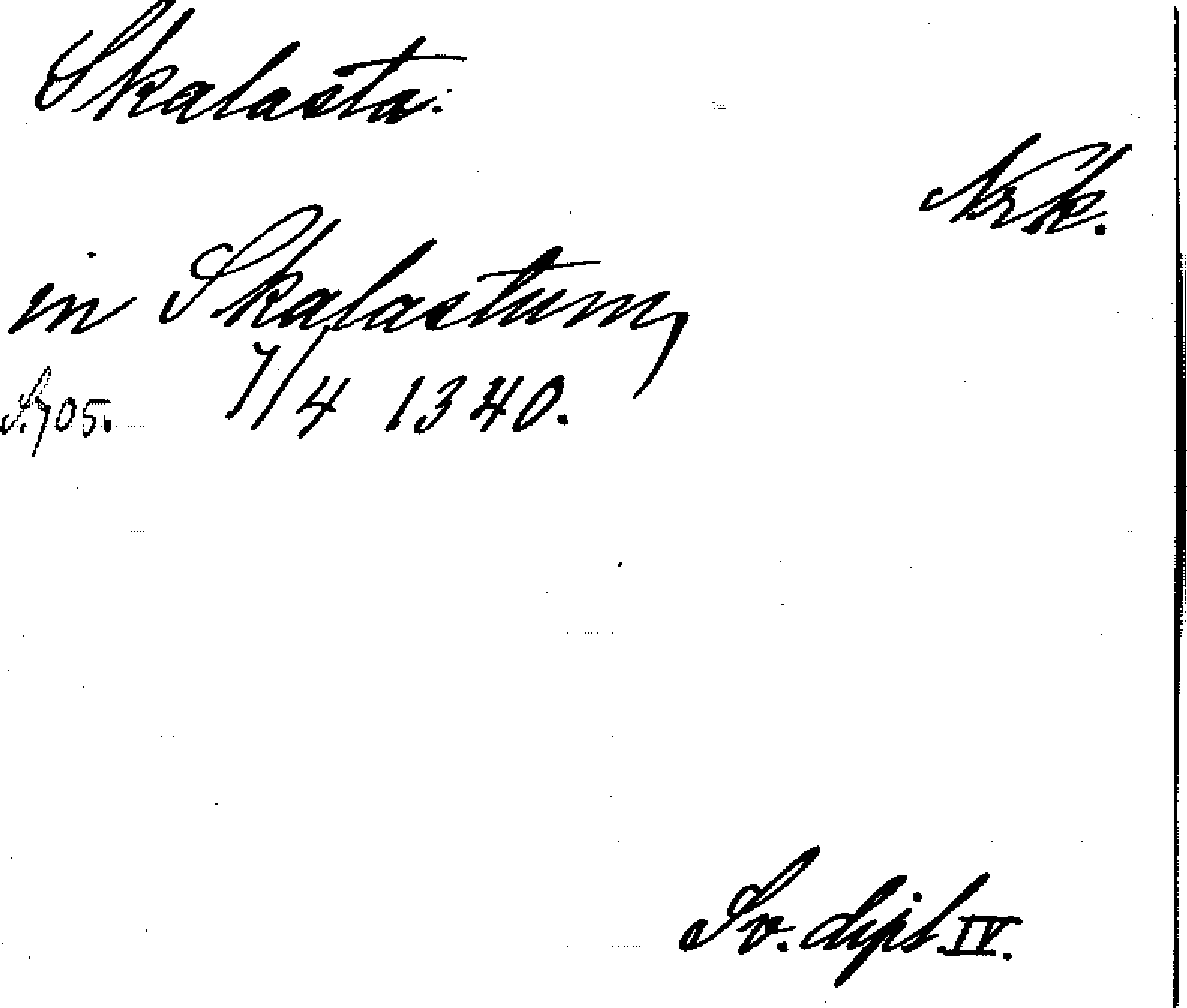 Skalasta.
Nrk.
in Skalastum,
S. 705. 7/4 1340.
Sv. dipl. IV.